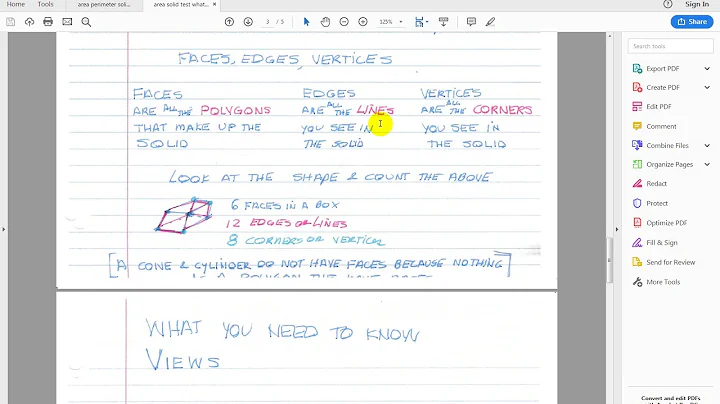 area perimeter soli...
area solid test what...
Sign In
Home
Tools
3 / 5
125%
Search tools
FACES, EDGES, VERTICES
FACES EDGES VERTICES
ARE ALL THE POLYGONS ARE ALL THE LINES ARE ALL THE CORNERS
THAT MAKE UP THE YOU SEE IN YOU SEE IN
SOLID THE SOLID THE SOLID
LOOK AT THE SHAPE & COUNT THE ABOVE
6 FACES IN A BOX
12 EDGES OR LINES
8 CORNERS OR VERTICES
[A CONE & CYLINDER DO NOT HAVE FACES BECAUSE NOTHING]
IS A POLYGON THE HAVE BASES
WHAT YOU NEED TO KNOW
VIEWS
Export PDF
Create PDF
Edit PDF
Comment
Combine Files
Organize Pages
Redact
Protect
Optimize PDF
Fill & Sign
Send for Review
More Tools
Convert and edit PDFs